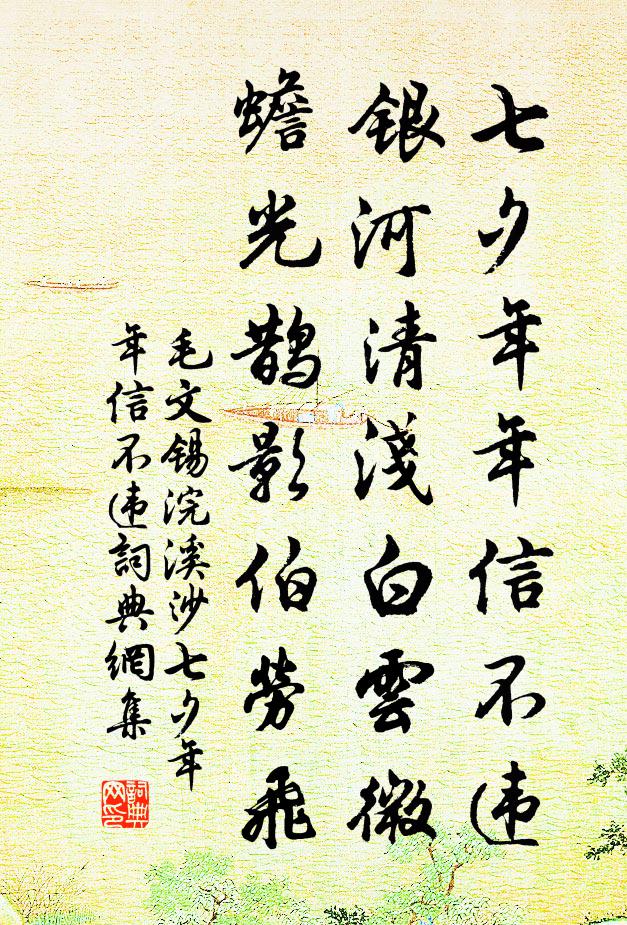 七夕年年信不违
銀河清淺白雲微
蟾光鵲影伯勞飛
毛文錫浣溪沙七夕年
年信不违詞典網集
詞典
网印